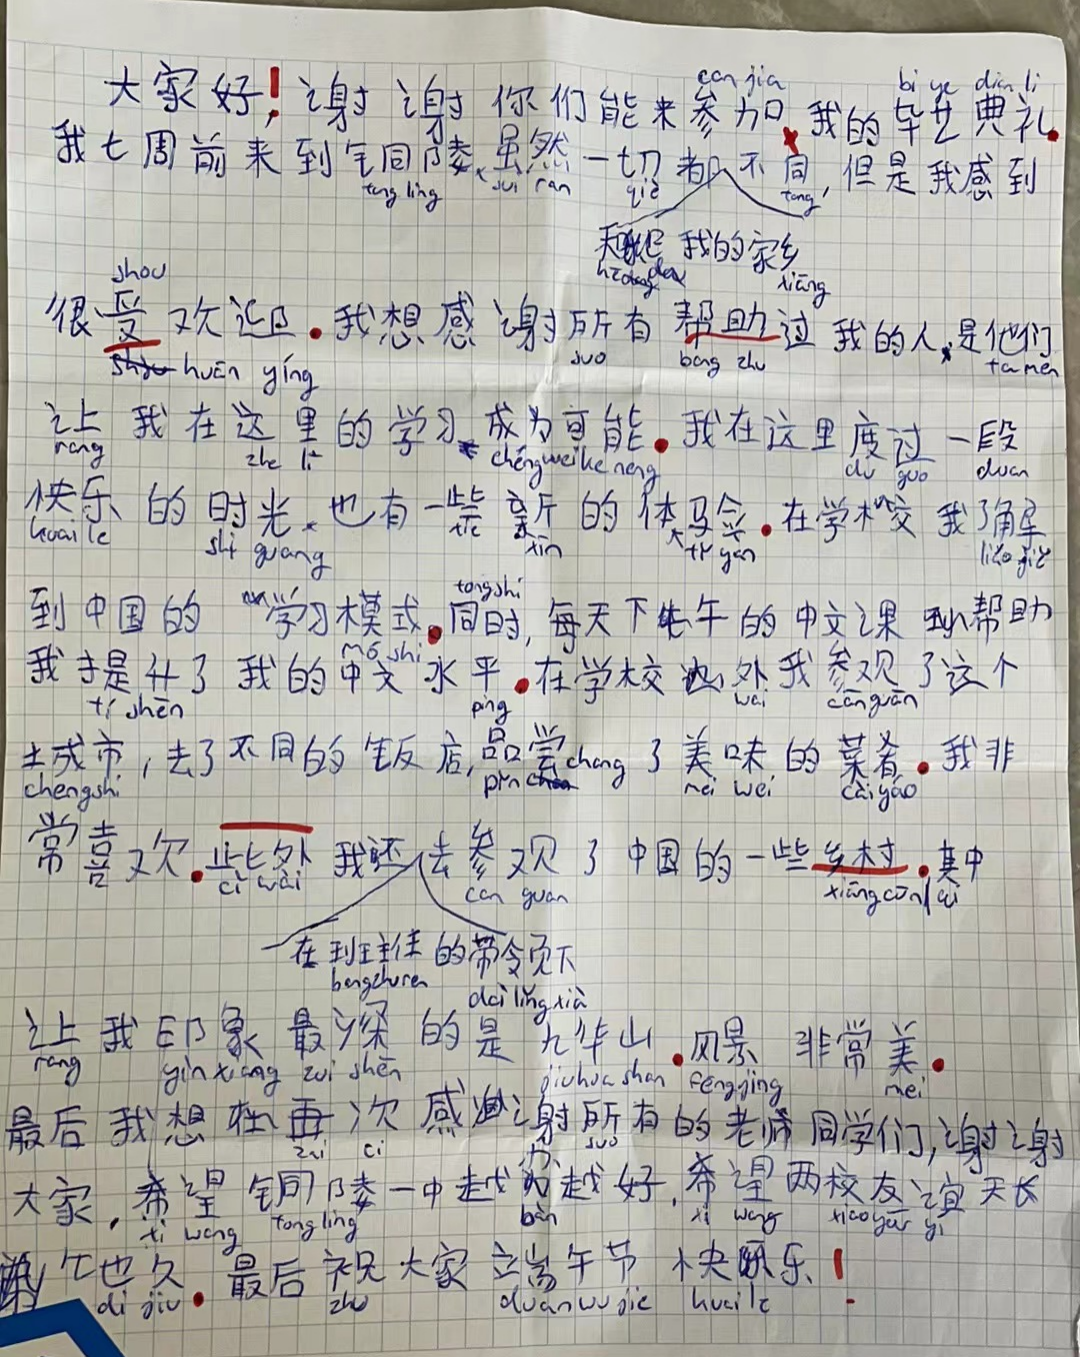 can jia bi ye dian li
大家好！谢谢你们能来参加我的毕业典礼.
我七周前来到铜陵.虽然一切都不同，但是我感到
tong ling sui ran qiè tong
我的家乡
xiāng
shou
很受欢迎.我想感谢所有帮助过我的人.是他们
huān yíng suo bang zhu ta men
让我在这里的学习成为可能.我在这里度过一段
rang zhe li chéng wei ke neng du guo duan
快乐的时光.也有一些新的体验.在学校我了解
kuai le shi guang xie xīn ti yan liǎo jiě
tong shi
到中国的学习模式.同时,每天下午的中文课帮助
mó shi
我提升了我的中文水平.在学校外我参观了这个
tí shēn ping wai cān guān
城市,去了不同的饭店,品尝了美味的菜肴.我非
cheng shi pǐn chang mei wei cài yáo
常喜欢.此外我还去参观了中国的一些乡村.其中
cǐ wài can guan xiāng cūn qi
在班主任的带领下
dài lǐng xià
让我印象最深的是九华山.风景非常美.
rang yìn xiang zui shēn jiu hua shan fēng jǐng mei
最后我想再次感谢所有的老师同学们,谢谢
ci suo
办
大家.希望铜陵一中越越好.希望两校友谊天长
xi wang tong ling bàn xi wang xiao yǒu yi
地久.最后祝大家端午节快乐！
di jiu zhu duan wu jie kuai le